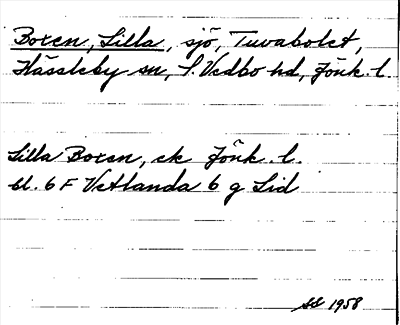 Boxen, Lilla, sjö, Tuvabolet,
Hässleby sn, S. Vedbo hd, Jönk. l.
Lilla Boxen, ek Jönk. l.
bl. 6 F Vetlanda 6 g Lid
1958